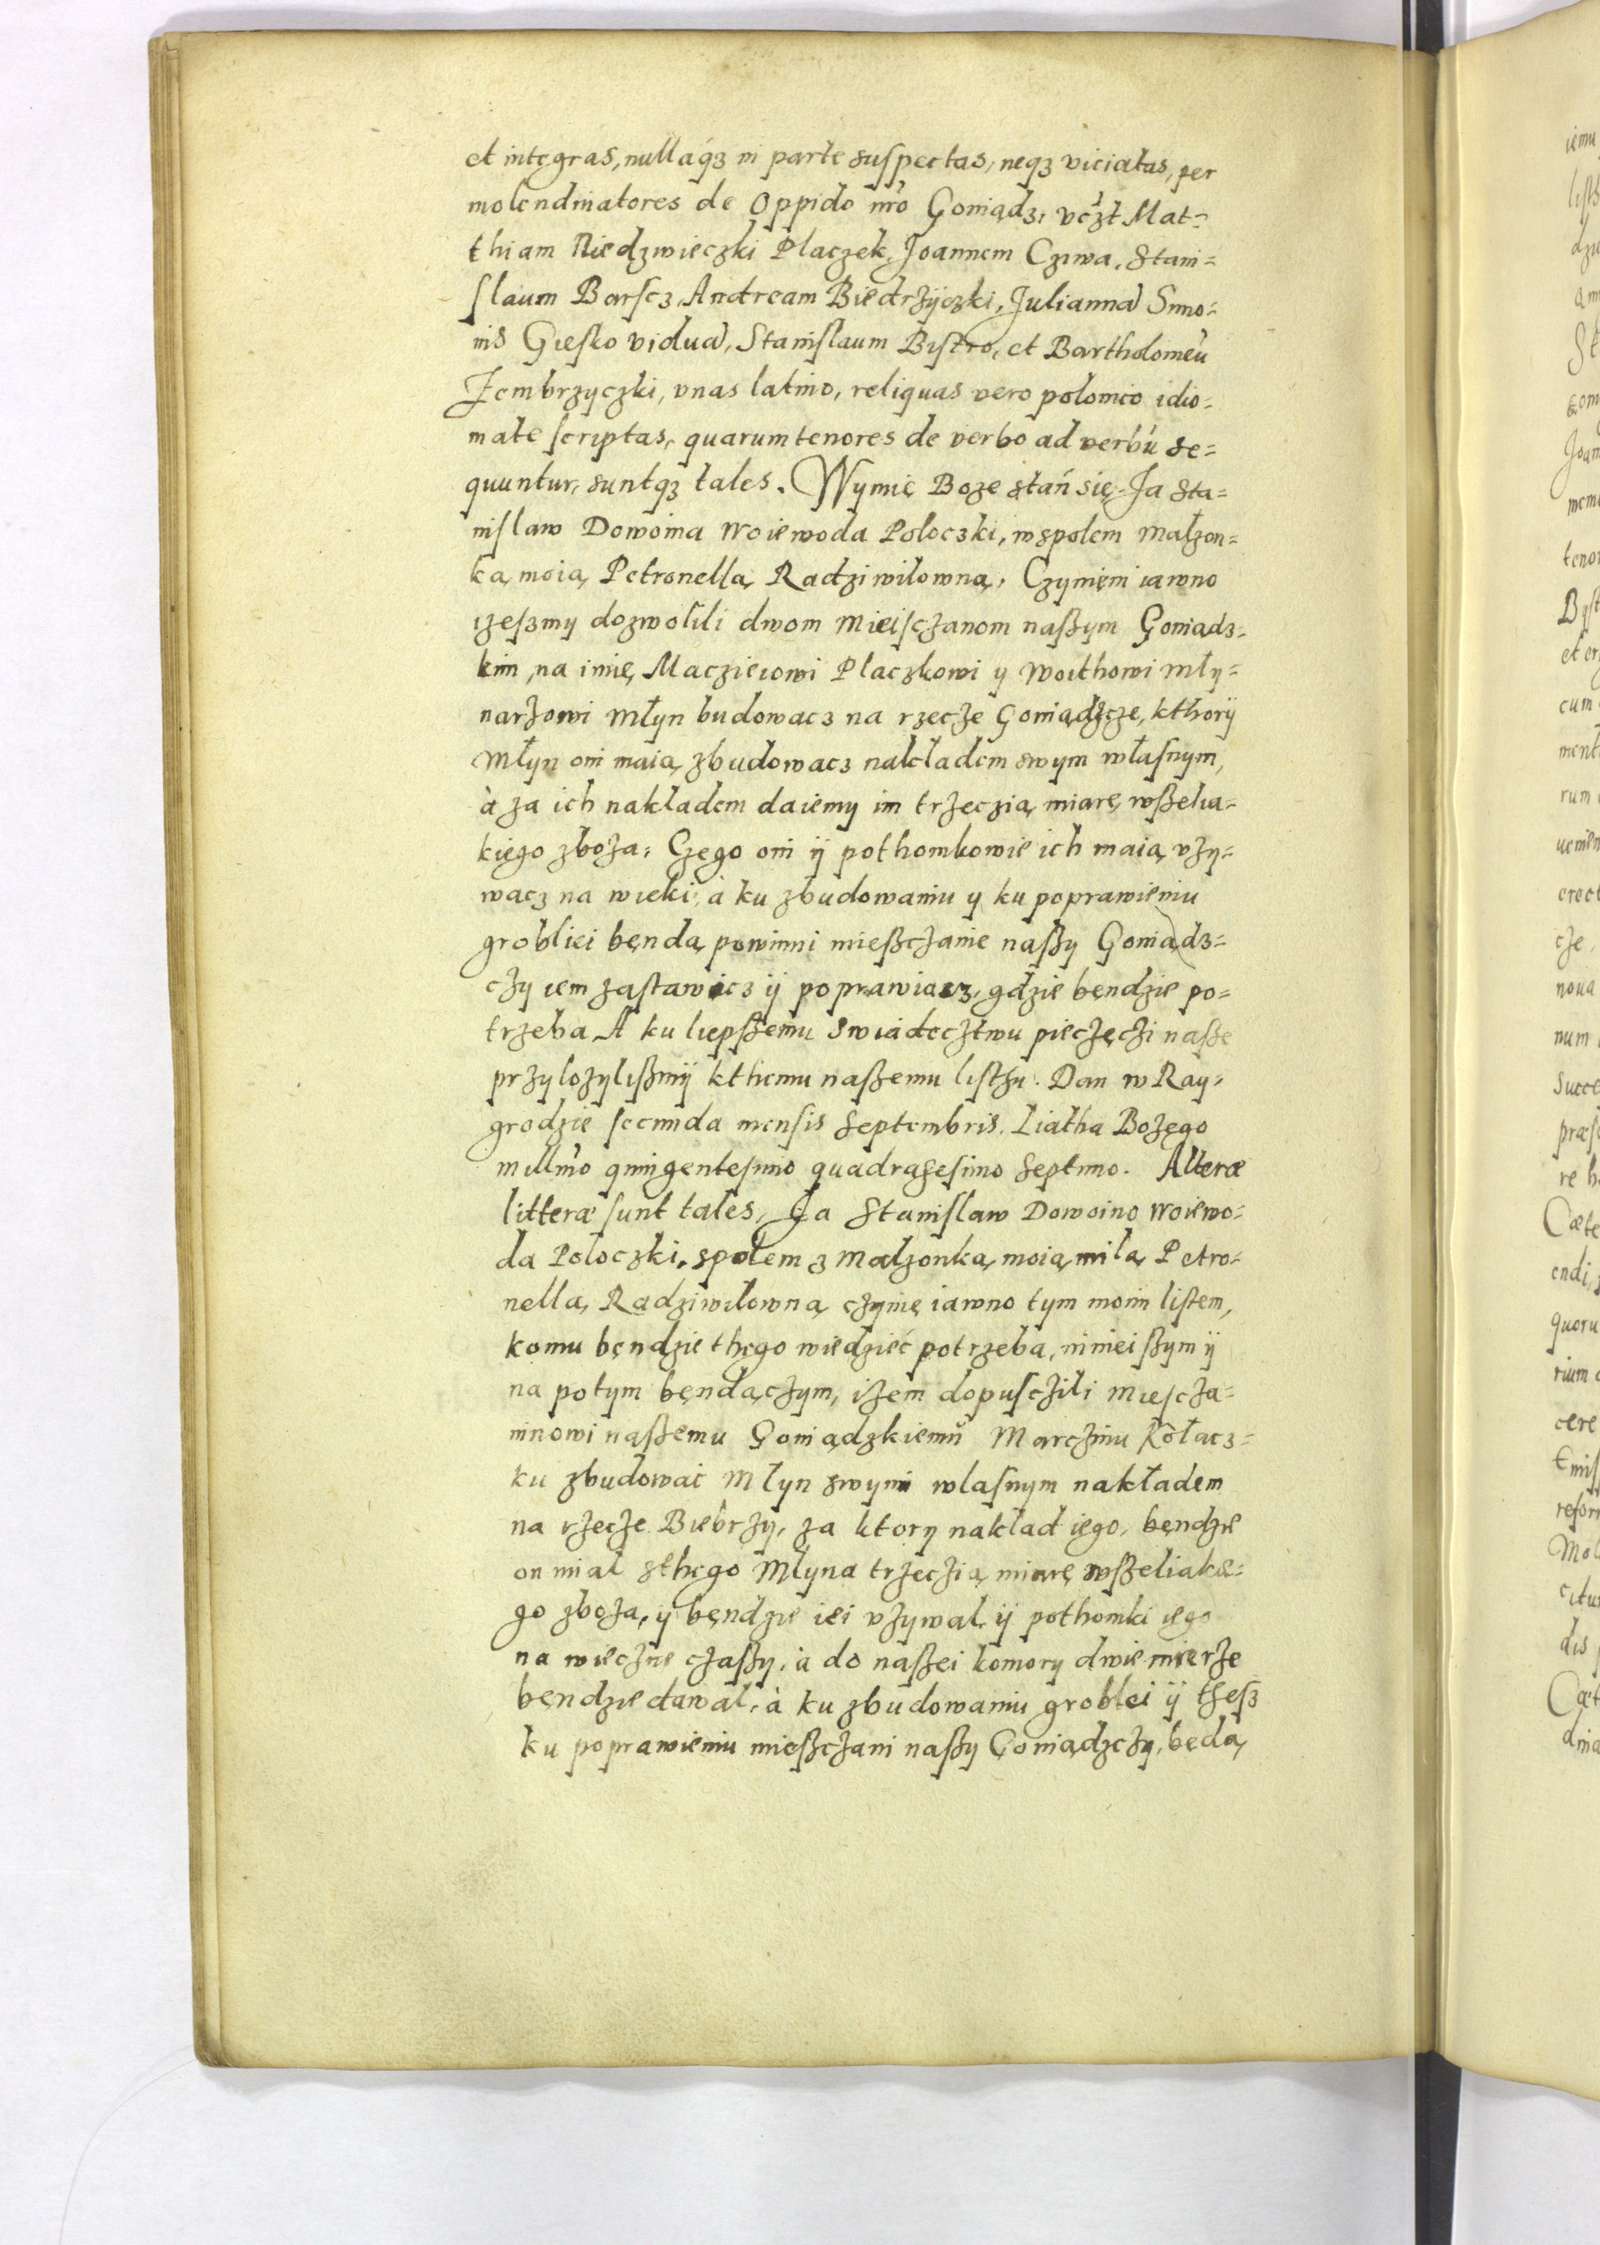 et integras, nullaq́ꝫ in parte suspectas, neqꝫ viciatas, per
molendinatores de Oppido nr̃o Goniądz, vcz̃t Mat-
thiam Niedzwieczki Placzek, Joannem Czwa, Stani-
slaum Barscz, Andream Biedrżÿczki, Julianna Simo-
nis Giesko vidua, Stanislaum Bistro, et Bartholomeũ
Jembrzyczki, vnas latino, reliquas vero polonico idio-
mate scriptas, quarum tenores de verbo ad verbũ se-
quuntur, suntqꝫ tales. Wymię Boze stań się. Ja Sta-
nislaw Dowoina Woiewoda Poloczki, wspolem małzon-
ką moią Petronellą Radziwilowną, Czyniemi iawno
iześzmy dozwolili dwom mieisczanom naßym Goniadz-
kim, na imię Maczieiowi Placzkowi y Woithowi Mły-
narżowi młyn budowacz na rzecże Goniądzcze, kthorÿ
młyn oni maią zbudowacz nakładem swym własnym,
à za ich nakladem daiemy im trżeczią miarę wßelia-
kięgo zboża, Czego oni ÿ pothomkowie ich maią vży-
wacz na wieki, à ku zbudowaniu y ku poprawieniu
grobliei bęndą powinni mießczanie naßy Goniadz-
czy iem zastawicz ÿ poprawiacz, gdzie bendzie po-
trzeba. A ku liepßemu swiadecztwu pieczęczi naße
przylozylißmÿ kthemu naßemu listhu. Dan w Ray-
grodzie secunda mensis Septembris. Liatha Bożego
millm̃o quingentesimo quadragesimo septimo. Alteræ
litteræ sunt tales, Ja Stanislaw Dowoino Woiewo-
da Poloczki, spolem z małzonką moią miłą Petro-
nellą Radziwilowną czynię iawno tym moim listem,
komu bęndzie thęgo wiedzieć potrzeba, ninieißym ÿ
na potym bęndączym, iżem dopusczili miescża-
ninowi naßemu Goniądzkiemŭ Marczinu Kołacz-
ku zbudowac Młyn swym wlasnym nakładem
na rżecże Biebrży, za ktory nakład iego, bęndzie
on mial zthęgo Młyna trżeczią miarę wßeliakie-
go zboża, ÿ bęndzie iei vżywal ÿ pothomki iego
na wieczne czaßy, à do naßei komory dwie mierże
bęndzie dawal, à ku zbudowaniu groblei ÿ thesz
ku poprawieniu mießczani naßy Goniądzczy, będą